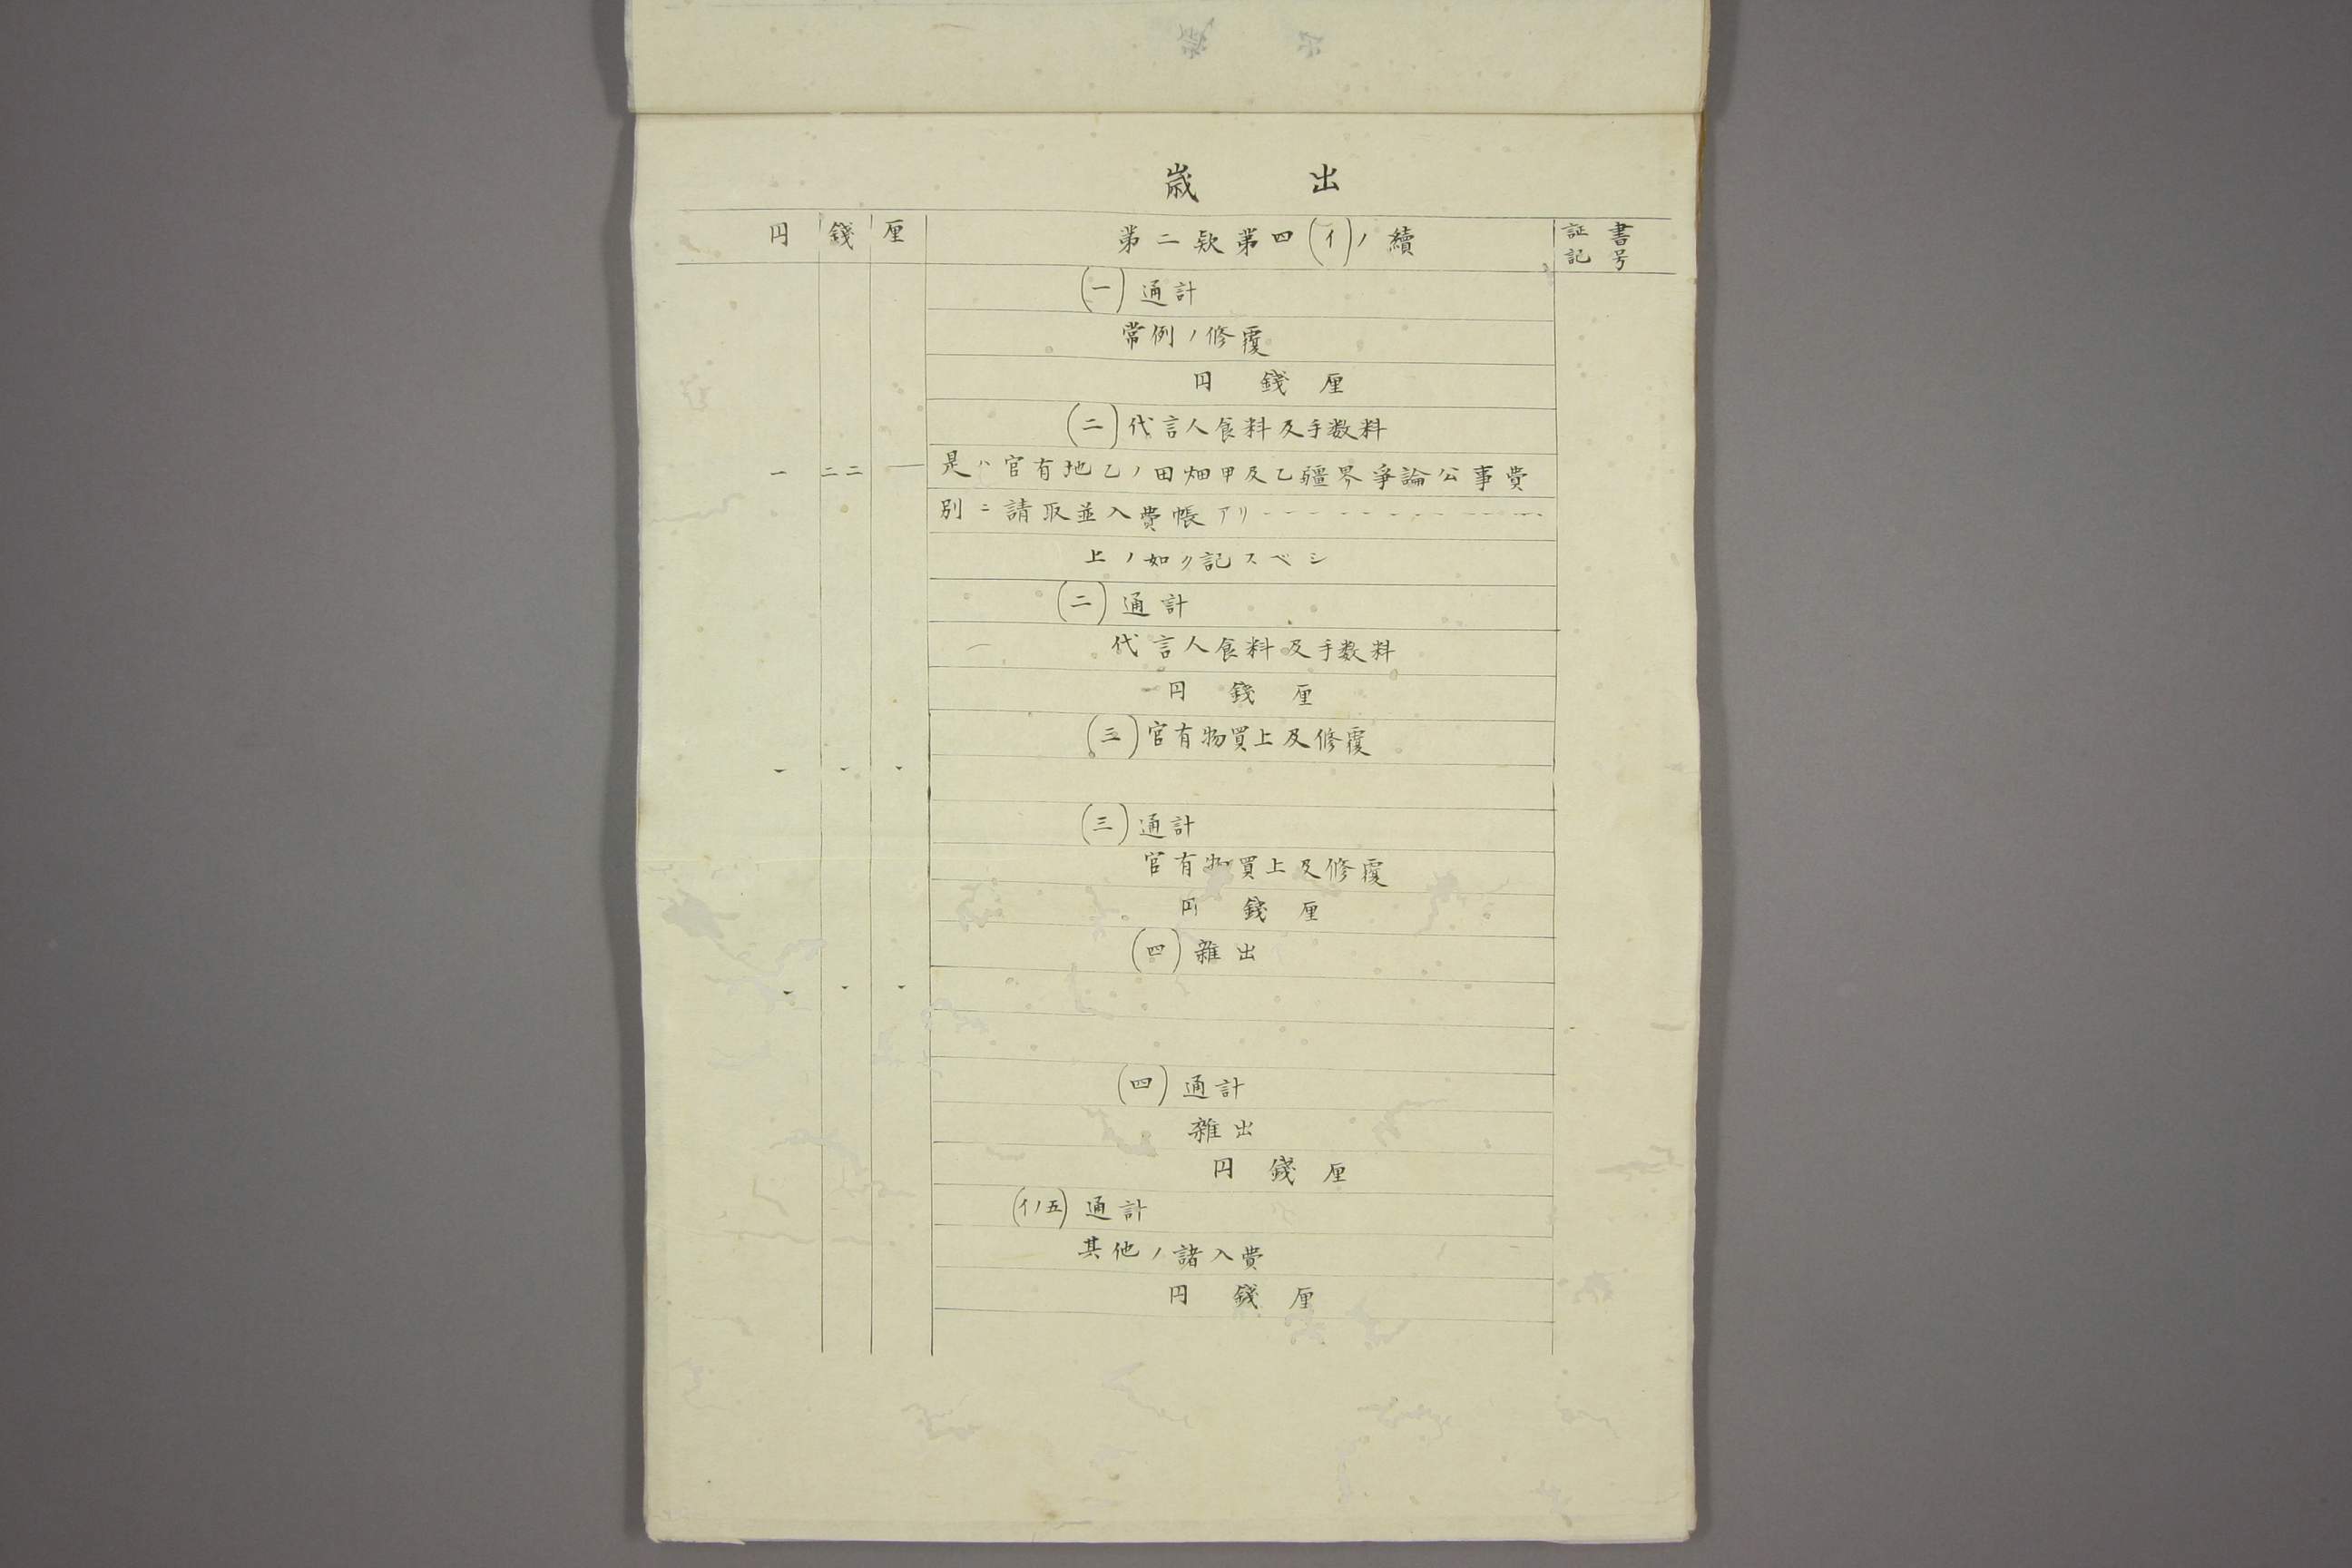 歳出
円 錢 厘 第二欵第四(イ)ノ續 証書記号
(一)通計
常例ノ修覆
円 錢 厘
(二)代言人食料及手数料
一 二二 一 是ハ官有地乙ノ田畑甲及乙疆界爭論公事費
別ニ請取並入費帳アリ
上ノ如ク記スベシ
(二)通計
代言人食料及手数料
円 錢 厘
(三)官有物買上及修覆
(三)通計
官有物買上及修覆
円 錢 厘
(四)雜出
(四)通計
雜出
円 錢 厘
(イノ五)通計
其他ノ諸入費
円 錢 厘